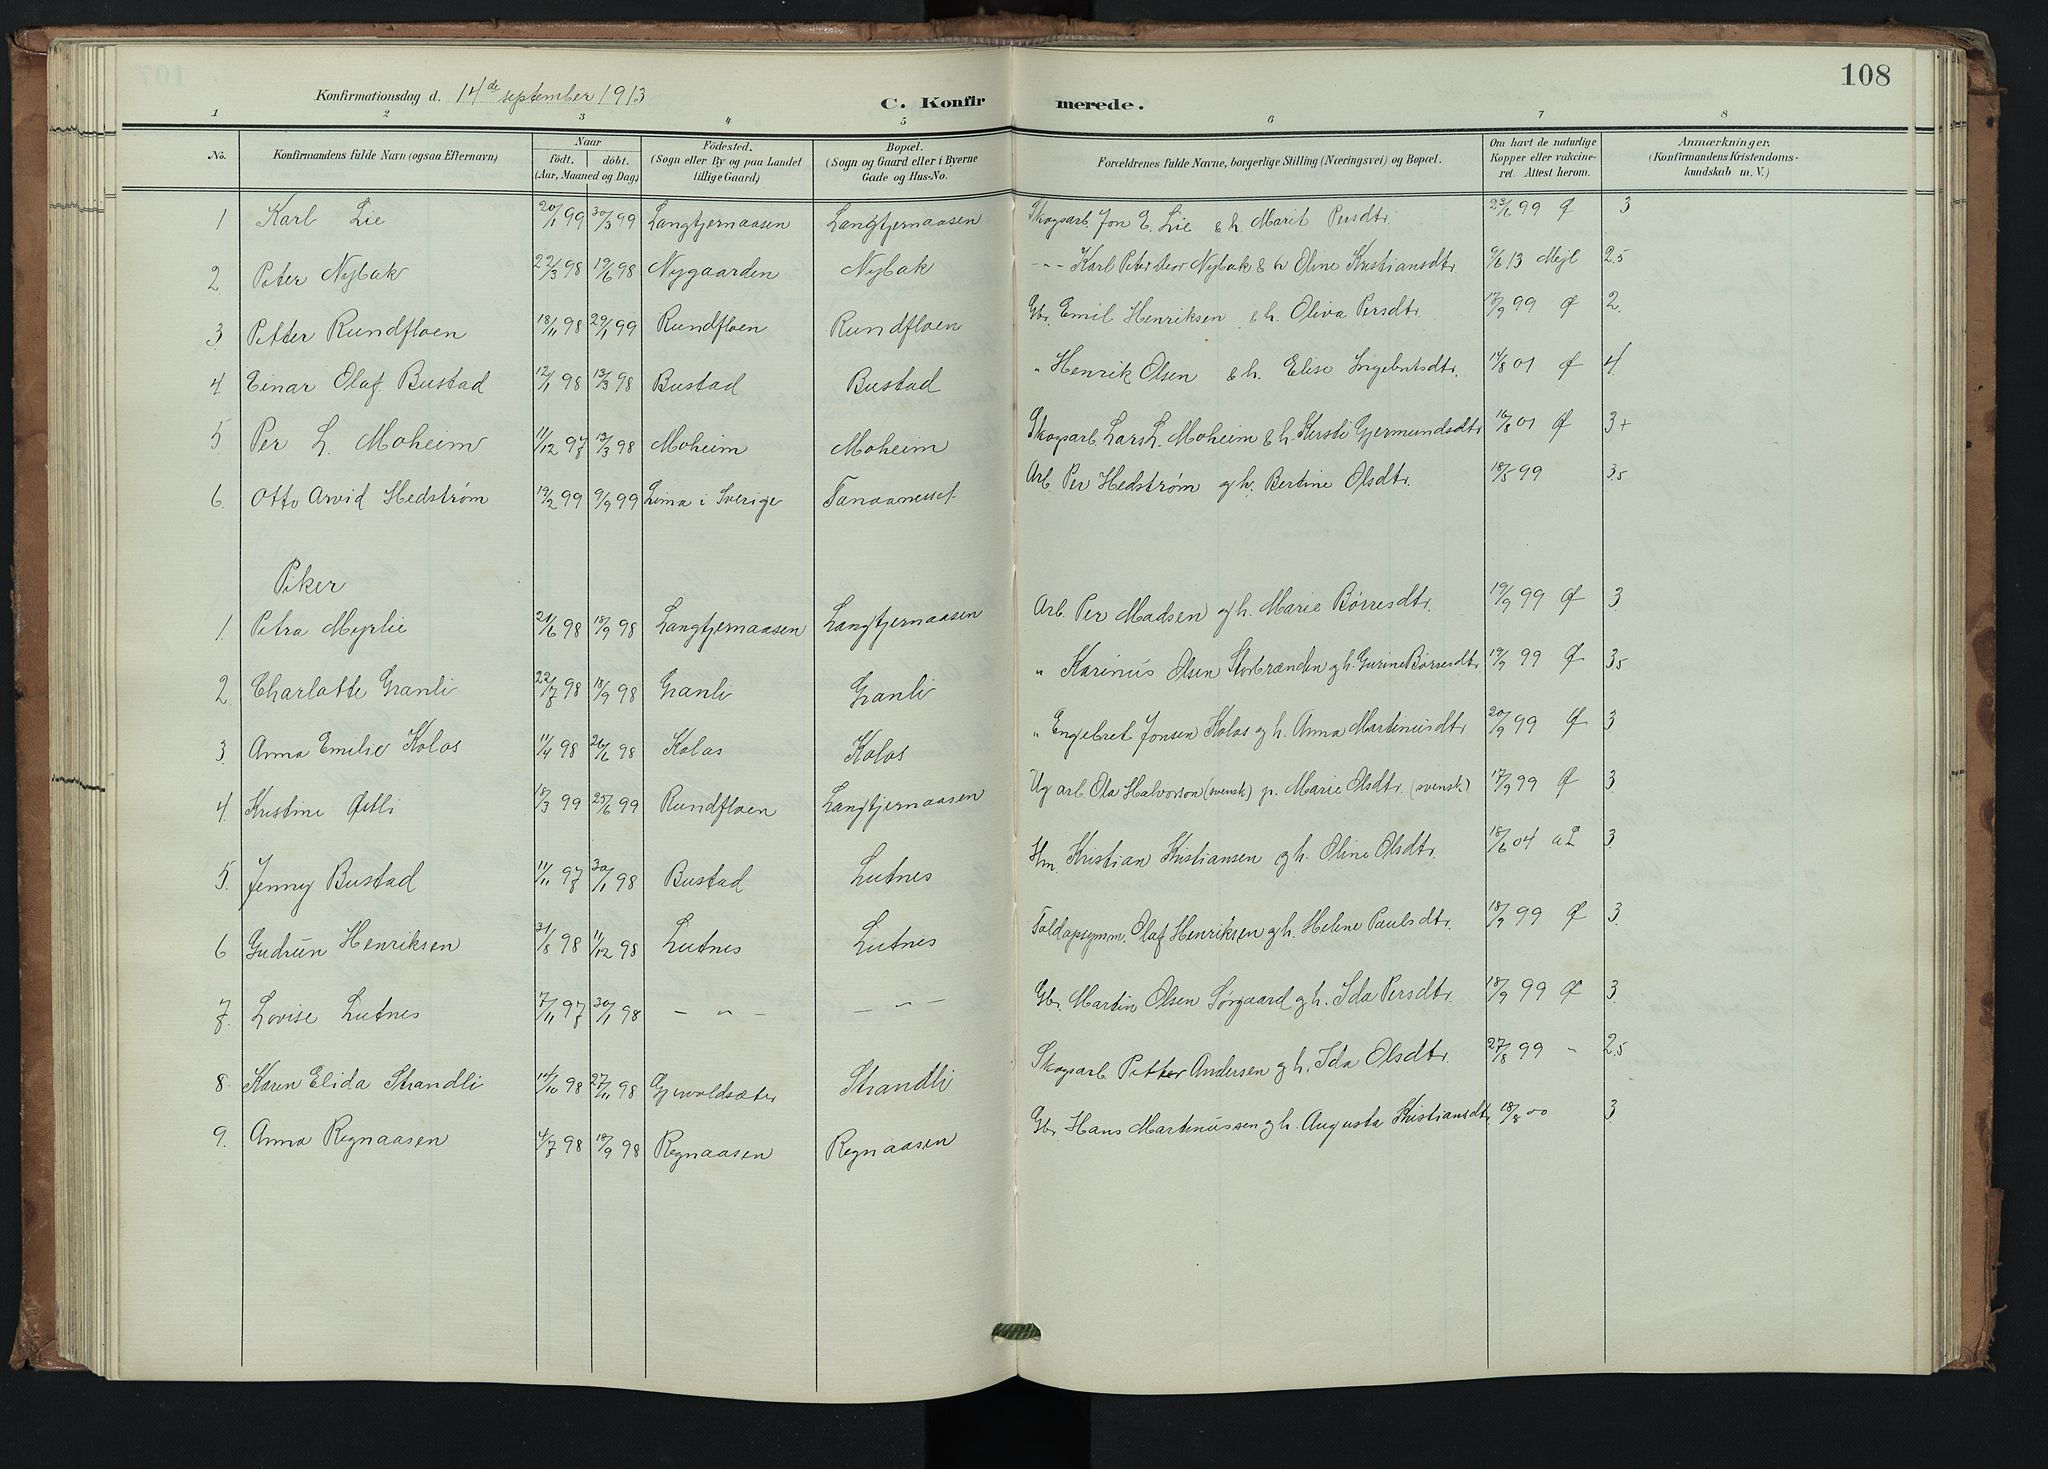 108
Konfirmationsdag d. 14de september 1913
C. Konfirmerede.
1 2 3 4 5 6 7 8
No. Konfirmandens fulde Navn (ogsaa Efternavn) Naar født. døbt. (Aar, Maaned og Dag) Fødested. (Sogn eller By og paa Landet tillige Gaard) Bopæl. (Sogn og Gaard eller i Byerne Gade og Hus-No. Forældrenes fulde Navne, borgerlige Stilling (Næringsvei) og Bopæl. Om havt de naturlige Kopper eller vakcineret. Attest herom. Anmærkninger. (Konfirmandens Kristendomskundskab m. V.)
1 Karl Lie 20/1 99 30/3 99 Langtjernaasen Langtjernaasen Skogsarb. Jon E. Lie & h. Marit Persdtr. 23/6 99 Ø 3
2. Peter Nybak 22/3 98 19/6 98 Nygaarden Nybak - - - Karl Peter Nybak & h Oline Kristiansdtr. 9/6 13 Mejl 2.5
3 Petter Rundfloen 18/11 98 29/1 99 Rundfloen Rundfloen Gbr. Emil Henriksen & h. Oliva Persdtr. 17/9 99 Ø 2.
4 Einar Olaf Bustad 12/1 98 13/3 98 Bustad Bustad " Henrik Olsen & h. Elise Ingebretsdtr. 14/8 01 Ø 4
5 Per L. Moheim 11/12 97 13/3 98 Moheim Moheim Skogsarb. Lars L. Moheim & h. Kersti Gjermundsdtr 16/8 01 Ø 3+
6. Otto Arvid Hedstrøm 19/2 99 9/9 99 Lima i Sverige Tanaaneset Arb. Per Hedstrøm g h. Bertine Olsdtr. 18/5 99 3.5
Piker
1. Petra Myrlie 21/6 98 18/9 98 Langtjernaasen Langtjernaasen Arb. Per Madsen g h. Marie Børresdtr. 19/9 99 Ø 3
2 Charlotte Granli 22/7 98 18/9 98 Granli Granli " Karinus Olsen Storbrænden g h. Gurine Børresdtr. 19/9 99 Ø 3.5
3. Anna Emilie Kolos 11/4 98 26/6 98 Kolos Kolos " Engebret Jonsen Kolos g h. Anna Martinusdtr 20/9 99 Ø 3
4. Kristine Østli 18/3 99 25/6 99 Rundfloen Langtjernaasen Ug arb. Ola Halvorson (svensk) p. Marie Olsdtr. (svensk) 17/9 99 Ø 3.
5. Jenny Bustad 11/11 97 30/1 98 Bustad Lutnes Hm. Kristian Kristiansen g h. Oline Olsdtr. 18/6 04 3.
6 Gudrun Henriksen 31/8 98 11/12 98 Lutnes Lutnes Toldopsynsm. Olaf Henriksen g h. Helene Paulsdtr. 18/9 99 Ø 3.
7. Lovise Lutnes 7/11 97 30/1 98 - " - - " - Gbr. Martin Olsen Sørgaard g h. Ida Persdtr. 18/9 99 Ø 3.
8. Karen Elida Strandli 14/10 98 27/11 98 Gjevoldsæter Strandli Skogsarb. Petter Andersen g h. Ida Olsdtr. 27/8 99 " 2.5
9. Anna Regnaasen 4/7 98 18/9 98 Regnaasen Regnaasen Gbr. Hans Martinussen g h. Augusta Kristiansdtr. 18/8 00 3.